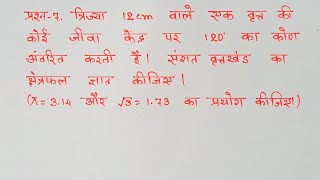 प्रश्न-7. त्रिज्या 12cm वाले एक वृत्त की
कोई जीवा केंद्र पर 120° का कोण
अंतरित करती है। संगत वृत्तखंड का
क्षेत्रफल ज्ञात कीजिए।
(π = 3.14 और √3 = 1.73 का प्रयोग कीजिए।)